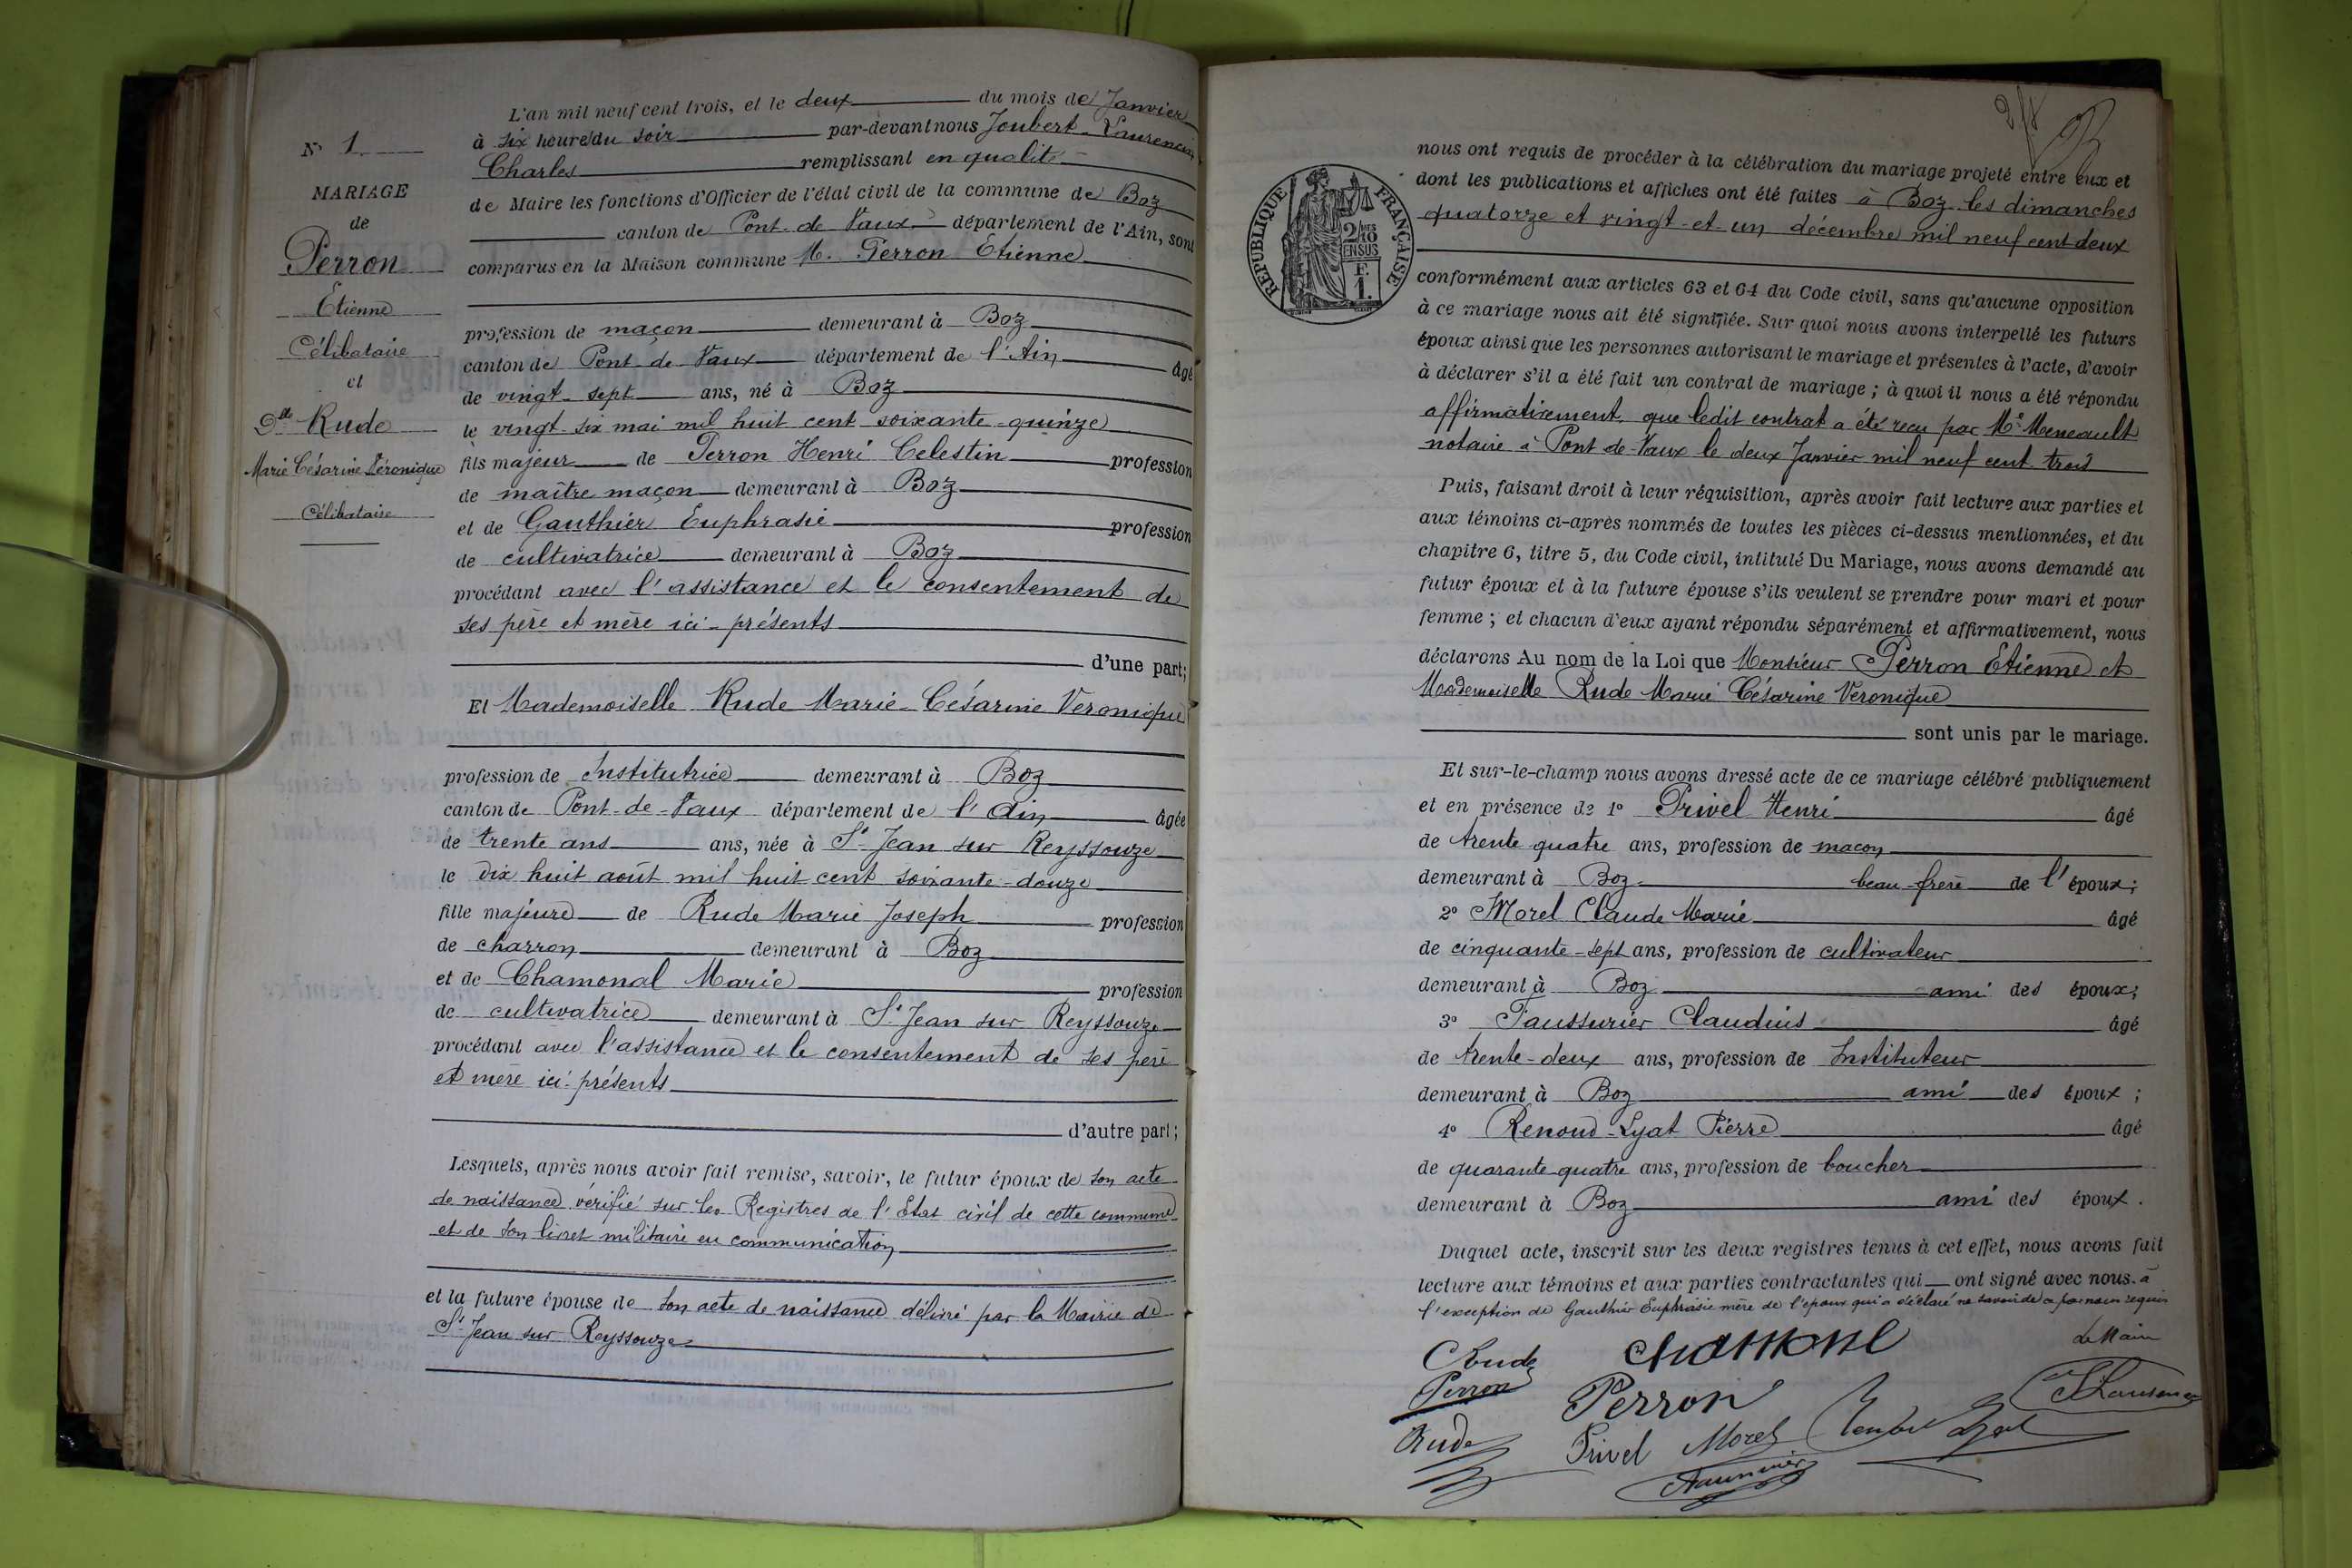 N° 1
MARIAGE
de
Perron
Etienne
Célibataire
et
Dlle Rude
Marie Césarine Véronique
Célibataire
L'an mil neuf cent trois, et le deux du mois de Janvier
à six heures du soir par-devant nous Joubert-Laurencin
Charles remplissant en qualité
de Maire les fonctions d'Officier de l'état civil de la commune de Boz
canton de Pont-de-Vaux département de l'Ain, sont
comparus en la Maison commune M. Perron Etienne
profession de maçon demeurant à Boz
canton de Pont-de-Vaux département de l'Ain âgé
de vingt-sept ans, né à Boz
le vingt-six mai mil huit cent soixante-quinze
fils majeur de Perron Henri Celestin profession
de maître maçon demeurant à Boz
et de Gauthier Euphrasie profession
de cultivatrice demeurant à Boz
procédant avec l'assistance et le consentement de
ses père et mère ici-présents
d'une part;
Et Mademoiselle Rude Marie-Césarine Veronique
profession de Institutrice demeurant à Boz
canton de Pont-de-Vaux département de l'Ain âgée
de trente ans ans, née à St-Jean sur Reyssouze
le dix huit août mil huit cent soixante-douze
fille majeure de Rude Marie Joseph profession
de charron demeurant à Boz
et de Chamonal Marie profession
de cultivatrice demeurant à St Jean sur Reyssouze
procédant avec l'assistance et le consentement de ses père
et mère ici-présents
d'autre part;
Lesquels, après nous avoir fait remise, savoir, le futur époux de son acte
de naissance vérifié sur les Registres de l'Etat civil de cette commune
et de son livret militaire en communication
et la future épouse de son acte de naissance délivré par la Mairie de
St Jean sur Reyssouze
2/8
RÉPUBLIQUE FRANÇAISE
2/10 MES
EN SUS
F.
1.
nous ont requis de procéder à la célébration du mariage projeté entre eux et
dont les publications et affiches ont été faites à Boz les dimanches
quatorze et vingt-et-un décembre mil neuf cent deux
conformément aux articles 63 et 64 du Code civil, sans qu'aucune opposition
à ce mariage nous ait été signifiée. Sur quoi nous avons interpellé les futurs
époux ainsi que les personnes autorisant le mariage et présentes à l'acte, d'avoir
à déclarer s'il a été fait un contrat de mariage ; à quoi il nous a été répondu
affirmativement, que ledit contrat a été reçu par Me Meneault
notaire à Pont-de-Vaux le deux Janvier mil neuf cent trois
Puis, faisant droit à leur réquisition, après avoir fait lecture aux parties et
aux témoins ci-après nommés de toutes les pièces ci-dessus mentionnées, et du
chapitre 6, titre 5, du Code civil, intitulé Du Mariage, nous avons demandé au
futur époux et à la future épouse s'ils veulent se prendre pour mari et pour
femme ; et chacun d'eux ayant répondu séparément et affirmativement, nous
déclarons Au nom de la Loi que Monsieur Perron Etienne et
Mademoiselle Rude Marie Césarine Veronique
sont unis par le mariage.
Et sur-le-champ nous avons dressé acte de ce mariage célébré publiquement
et en présence de 1° Privel Henri âgé
de trente quatre ans, profession de maçon
demeurant à Boz beau-frère de l'époux;
2° Morel Claude Marie âgé
de cinquante-sept ans, profession de cultivateur
demeurant à Boz ami des époux;
3° Faussurier Claudius âgé
de trente-deux ans, profession de Instituteur
demeurant à Boz ami des époux ;
4° Renoud-Lyat Pierre âgé
de quarante-quatre ans, profession de boucher
demeurant à Boz ami des époux.
Duquel acte, inscrit sur les deux registres tenus à cet effet, nous avons fait
lecture aux témoins et aux parties contractantes qui ont signé avec nous. à
l'exception de Gauthier Euphrasie mère de l'époux qui a déclaré ne savoir de ce requis
Le Maire
C Rude Chamonal
Perron Perron
Rude Privel Morel